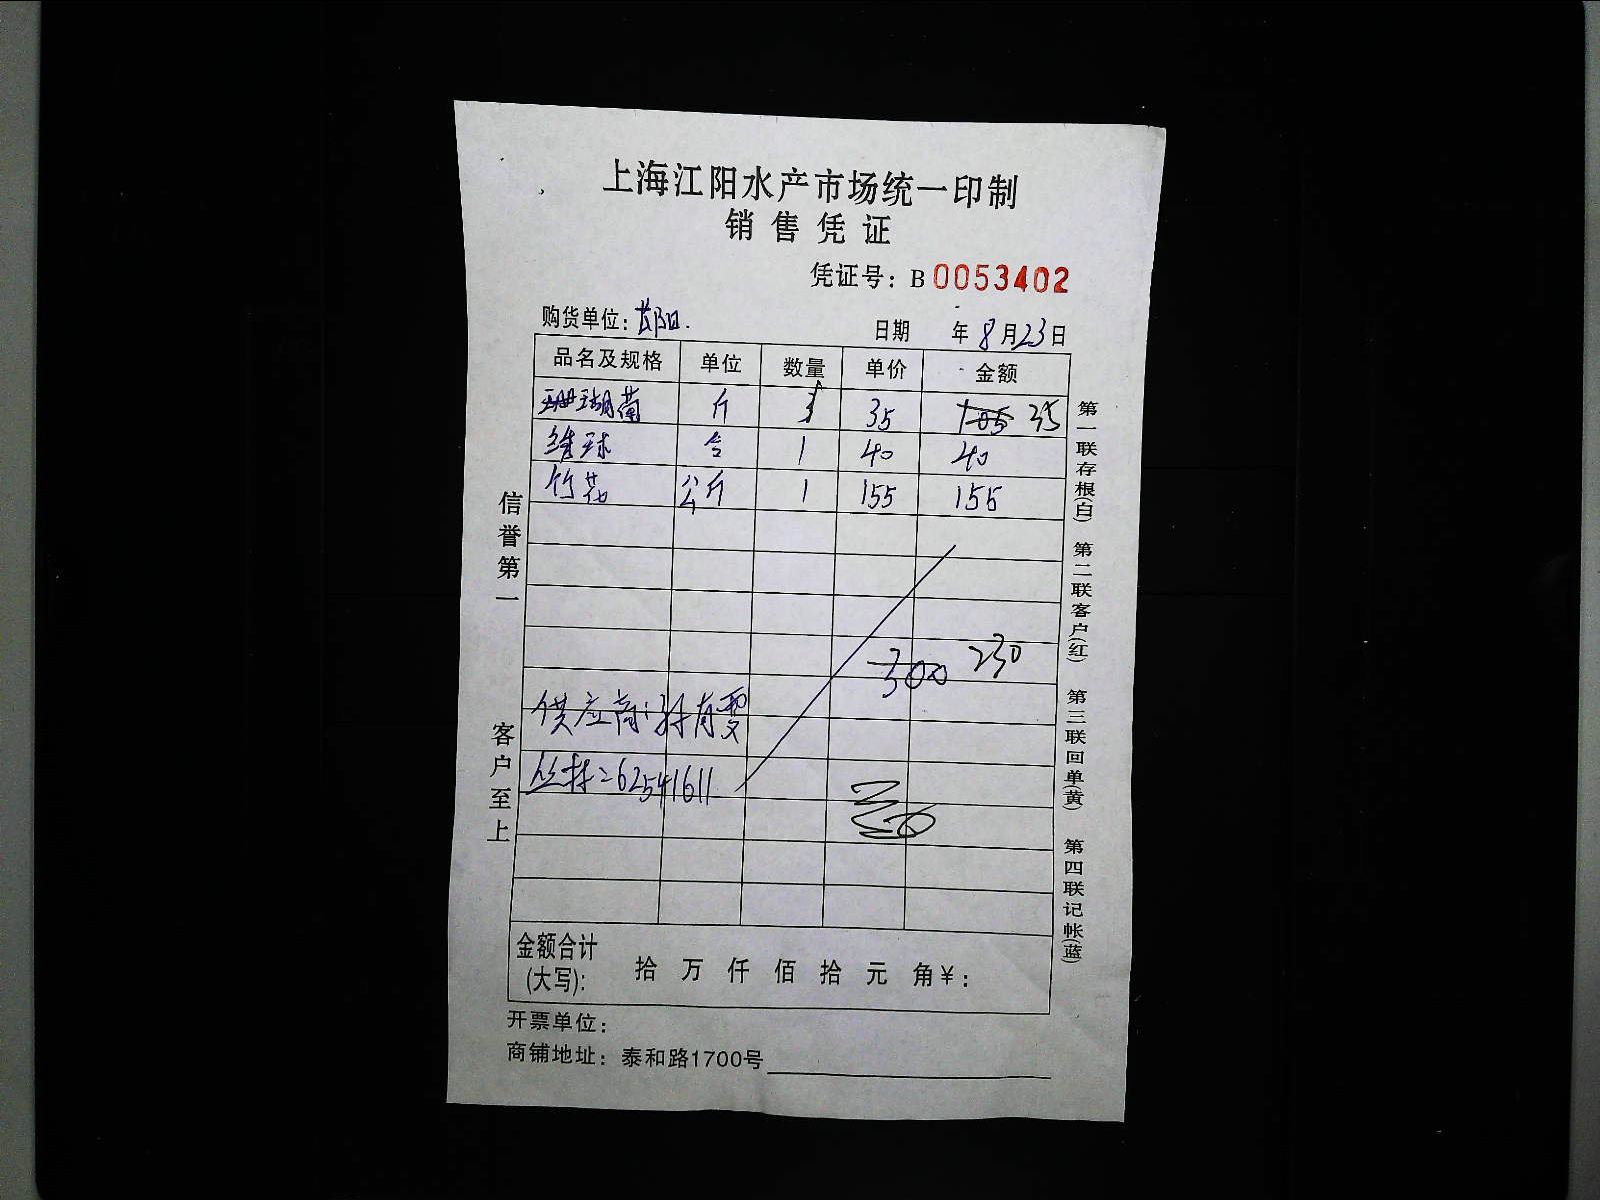 上海江阳水产市场统一印制
销售凭证
凭证号：B 0053402
购货单位：
日期 年 8 月 23 日
品名及规格 单位 数量 单价 金额
珊瑚菌 斤 35 105 35
球 1 40 40
竹花 公斤 1 155 155
300 230
供应商：
62541611
金额合计
(大写)： 拾 万 仟 佰 拾 元 角 ¥：
开票单位：
商铺地址：泰和路1700号
信誉第一 客户至上
第一联存根(白) 第二联客户(红) 第三联回单(黄) 第四联记帐(蓝)